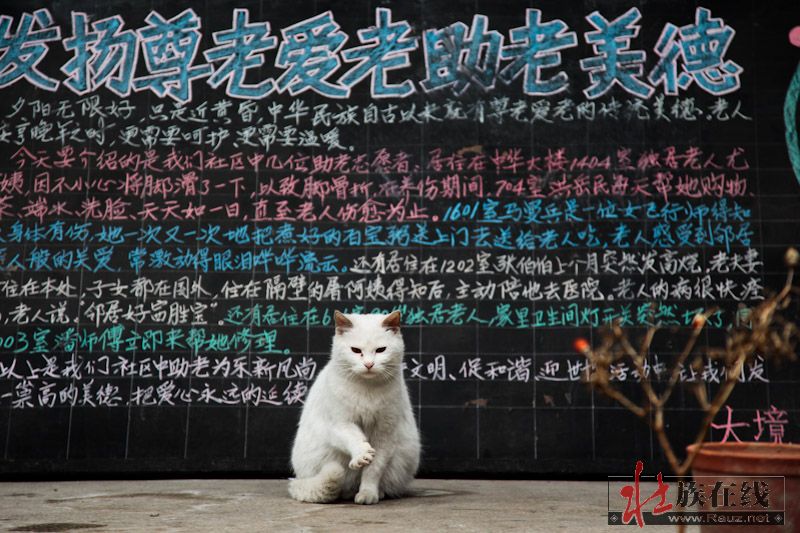 发扬尊老爱老助老美德
夕阳无限好，只是近黄昏，中华民族自古以来就有尊老爱老的传统美德。老人
晚年之时，更需要呵护、更需要温暖。
今天要介绍的是我们社区中几位助老志愿者、居住在中华大楼1404室独居老人尤
姨，因不小心将脚滑了一下，以致脚骨折，在养伤期间，704室洪岳民每天帮她购物
菜、端水、洗脸、天天如一日，直至老人伤愈为止。1601室马曼兵是一位女飞行师得知
身体有伤，她一次又一次地把煮好的石宝粥送上门去送给老人吃，老人感受到邻居
人般的关爱，常激动得眼泪哗哗流云。还有居住在1202室张伯伯上个月突然发高烧，老夫妻
住在本处，子女都在国外，住在隔壁的屠阿姨得知后，主动陪他去医院。老人的病很快痊
老人说，邻居好富胜宝。还有居住在6 独居老人，家里卫生间灯开关突然坏了，
003室潘师傅立即来帮她修理。
以上是我们社区中助老为乐新风尚 文明、促和谐、迎世 活动中 让我们发
崇高的美德，把爱心永远的延续
大境
壮族在线
www.Rauz.net